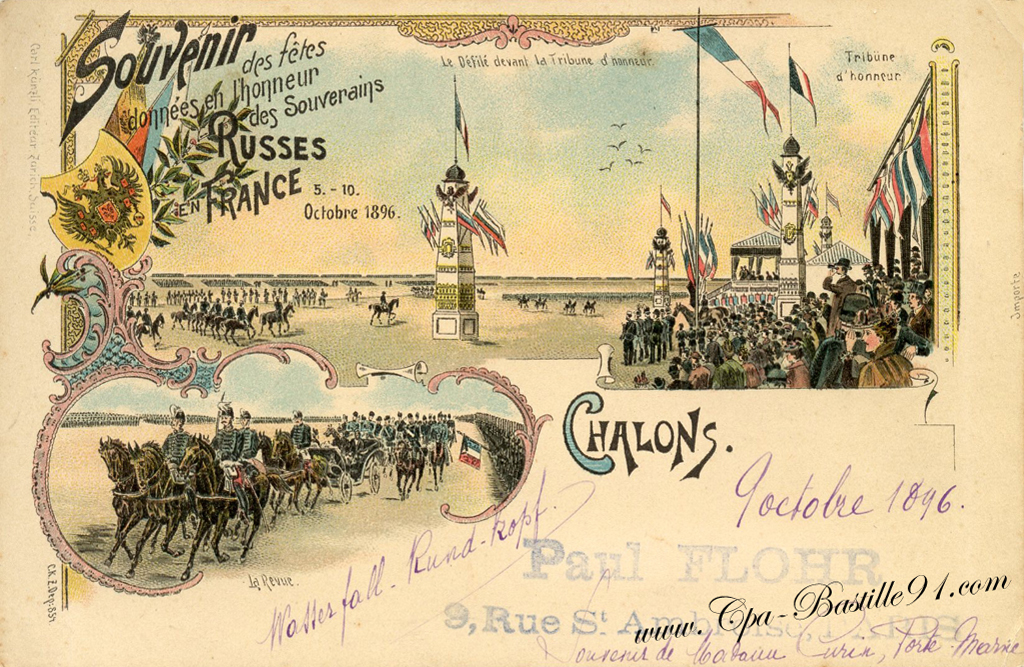 Souvenir
des fêtes
données en l'honneur
des Souverains
RUSSES
EN FRANCE
5.-10.
Octobre 1896.
Le Défilé devant la Tribune d'honneur.
Tribüne
d'honneur
Carl Künzli, Editeur Zürich, Suisse.
Importé
CHALONS.
La Revue.
C.K.Z. Dep. 854.
9 octobre 1896.
Wasserfall - Rund-Kopf.
Paul FLOHR
9, Rue St Ambroise, PARIS
www.Cpa-Bastille91.com
Souvenir de